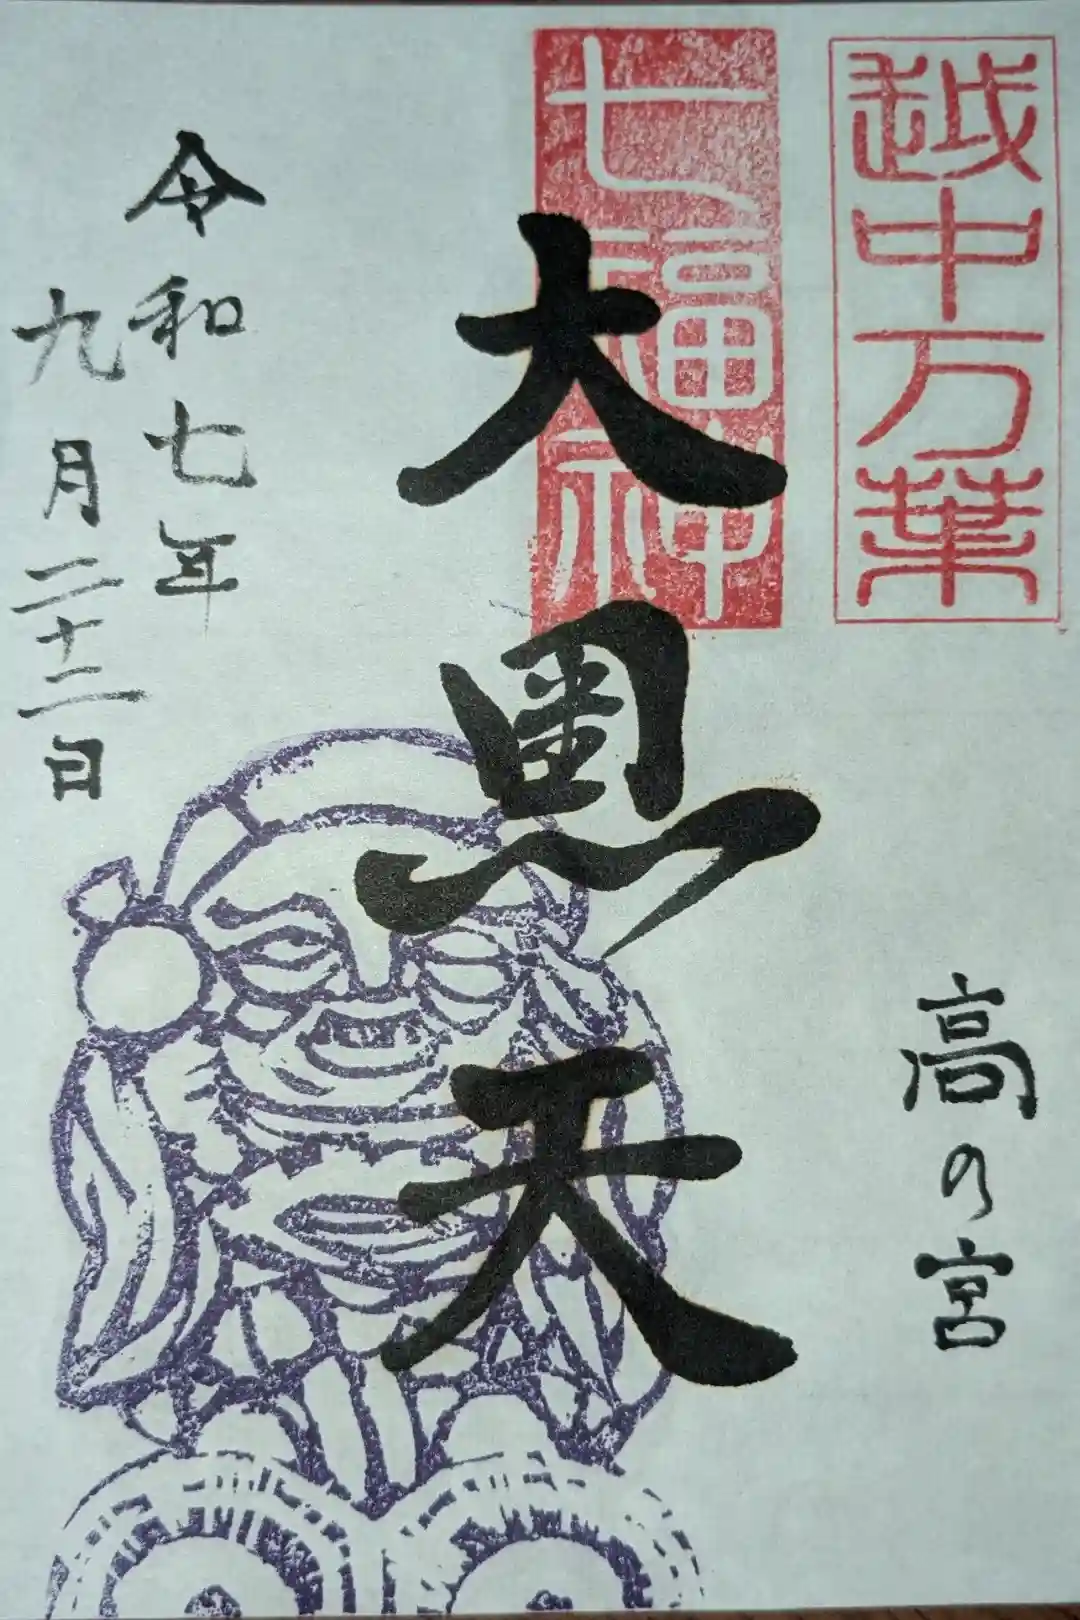 越中万葉
七福神
高の宮
大黒天
令和七年
九月二十三日